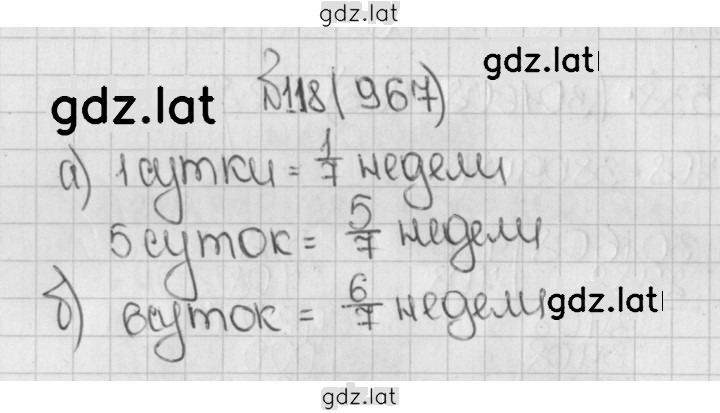 gdz.lat
gdz.lat
gdz.lat
№118(967)
а) 1 сутки = 1/7 недели
5 суток = 5/7 недели
б) 6 суток = 6/7 недели
gdz.lat
gdz.lat